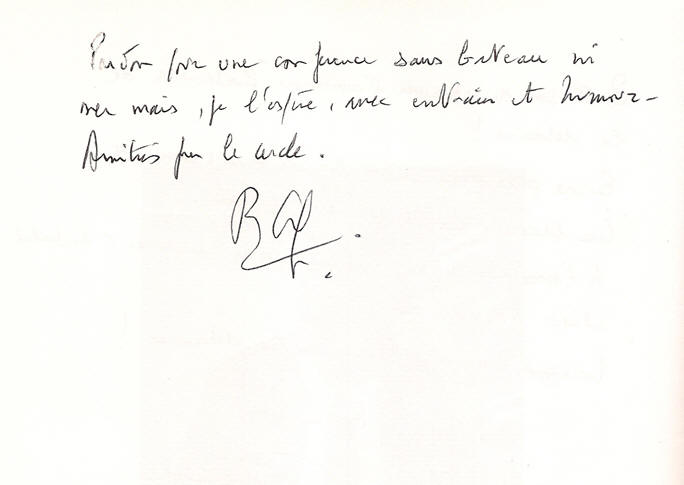 Pardon pour une conférence sans bateau ni
mer mais, je l'espère, avec entrain et humour -
Amitiés pour le cercle.